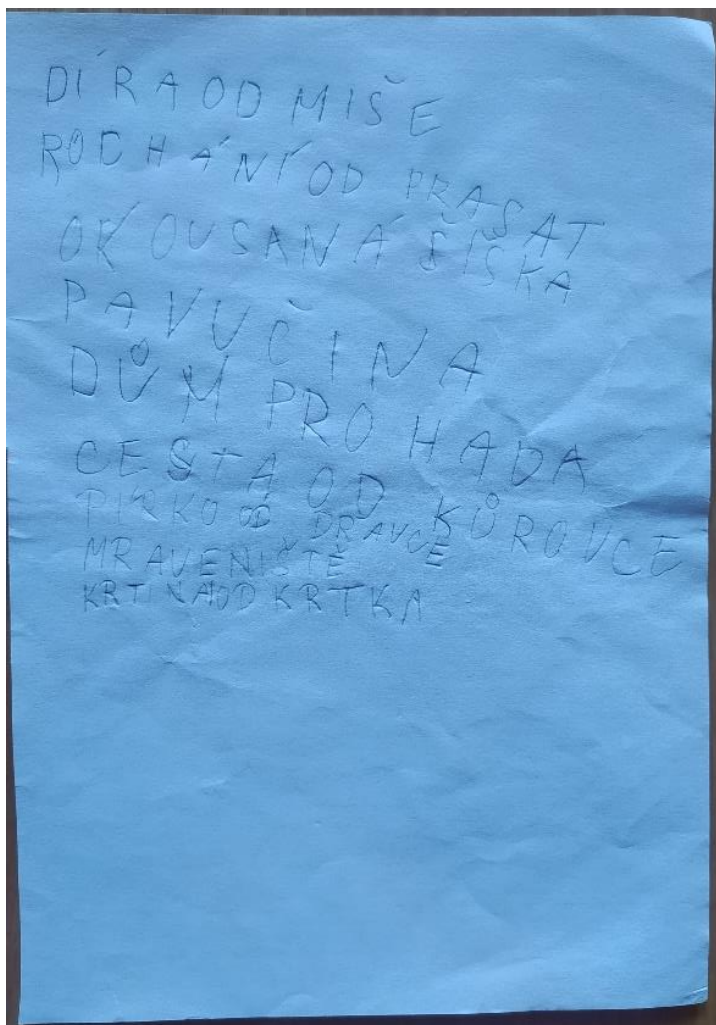 DÍRA OD MIŠE
ROCHÁNÍ OD PRASAT
OKOUSANÁ ŠIŠKA
PAVUČINA
DŮM PRO HADA
CESTA OD KŮROVCE
PÍRKO OD DRAVCE
MRAVENIŠTĚ
KRTINA OD KRTKA